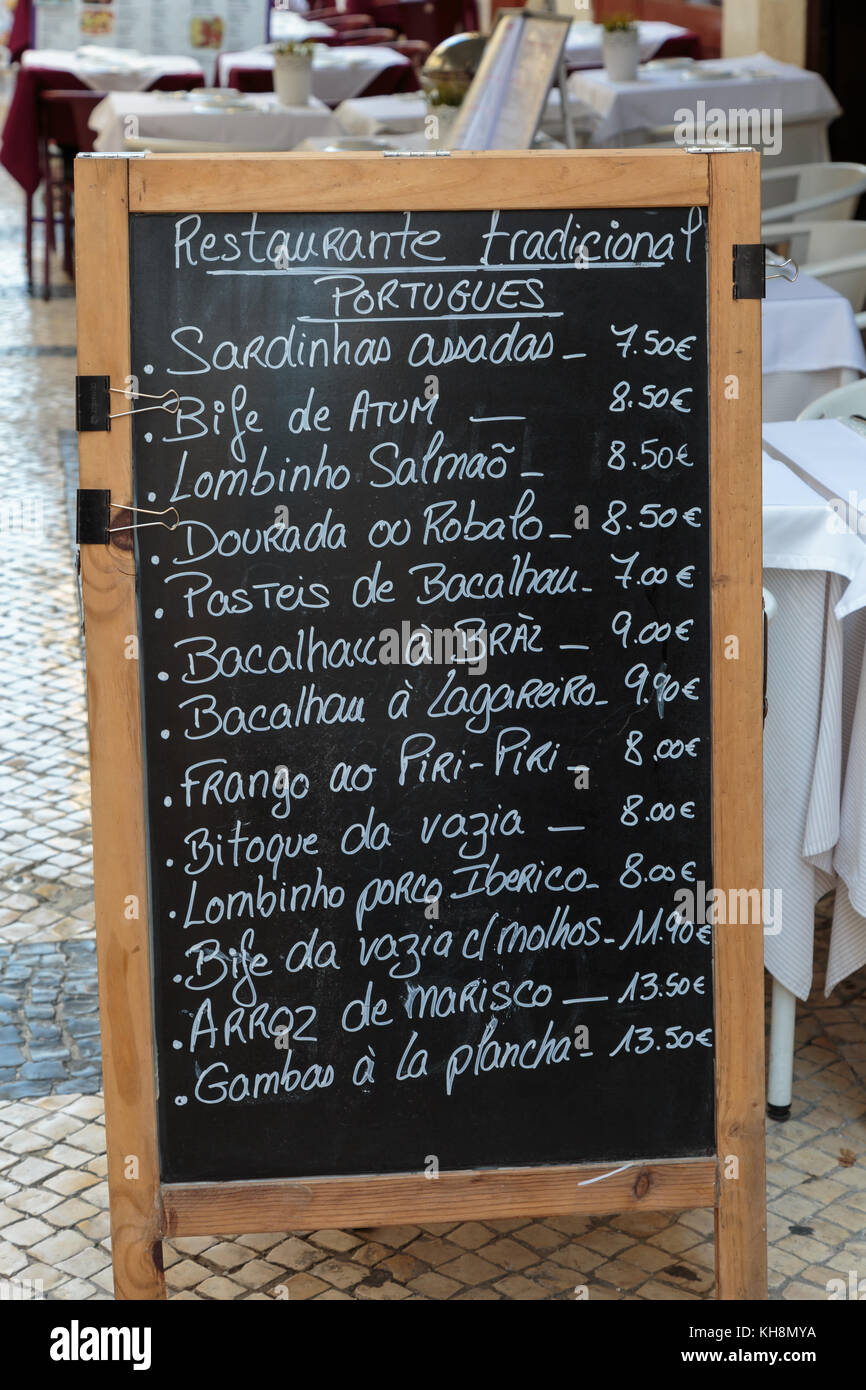 Restaurante tradicional
PORTUGUES
. Sardinhas assadas - 7.50€
. Bife de ATUM — 8.50€
. Lombinho Salmaõ - 8.50€
. Dourada ou Robalo - 8.50€
. Pasteis de Bacalhau - 7.00€
. Bacalhau à BRÀZ - 9.00€
. Bacalhau à Lagareiro - 9.90€
. Frango ao Piri-Piri - 8.00€
. Bitoque da vazia — 8.00€
. Lombinho porco Iberico - 8.00€
. Bife da vazia c/ molhos - 11.90€
. ARROZ de marisco — 13.50€
. Gambas à la plancha - 13.50€
alamy stock photo
KH8MYA
www.alamy.com